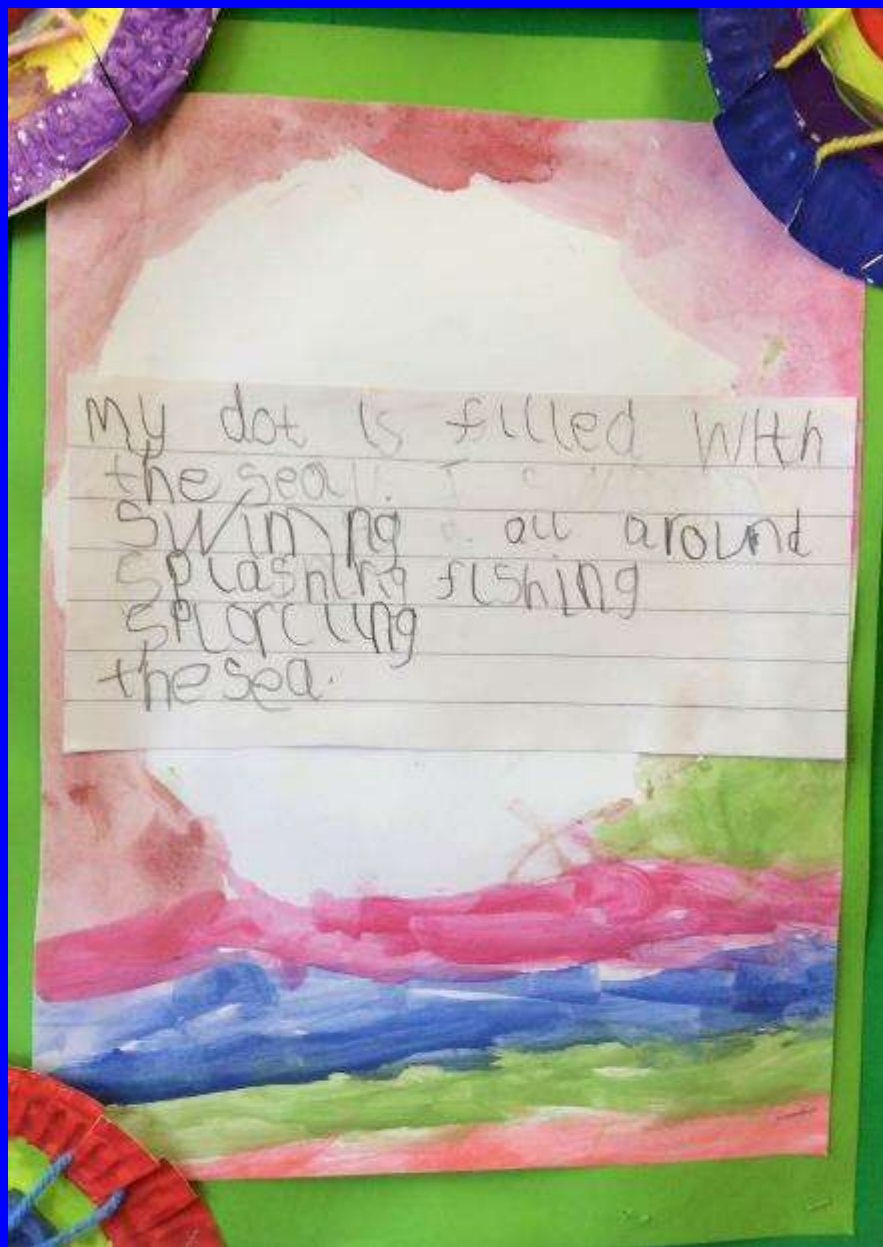 My dot is filled with
the sea
swiming all around
splashing fishing
splorcling
the sea.